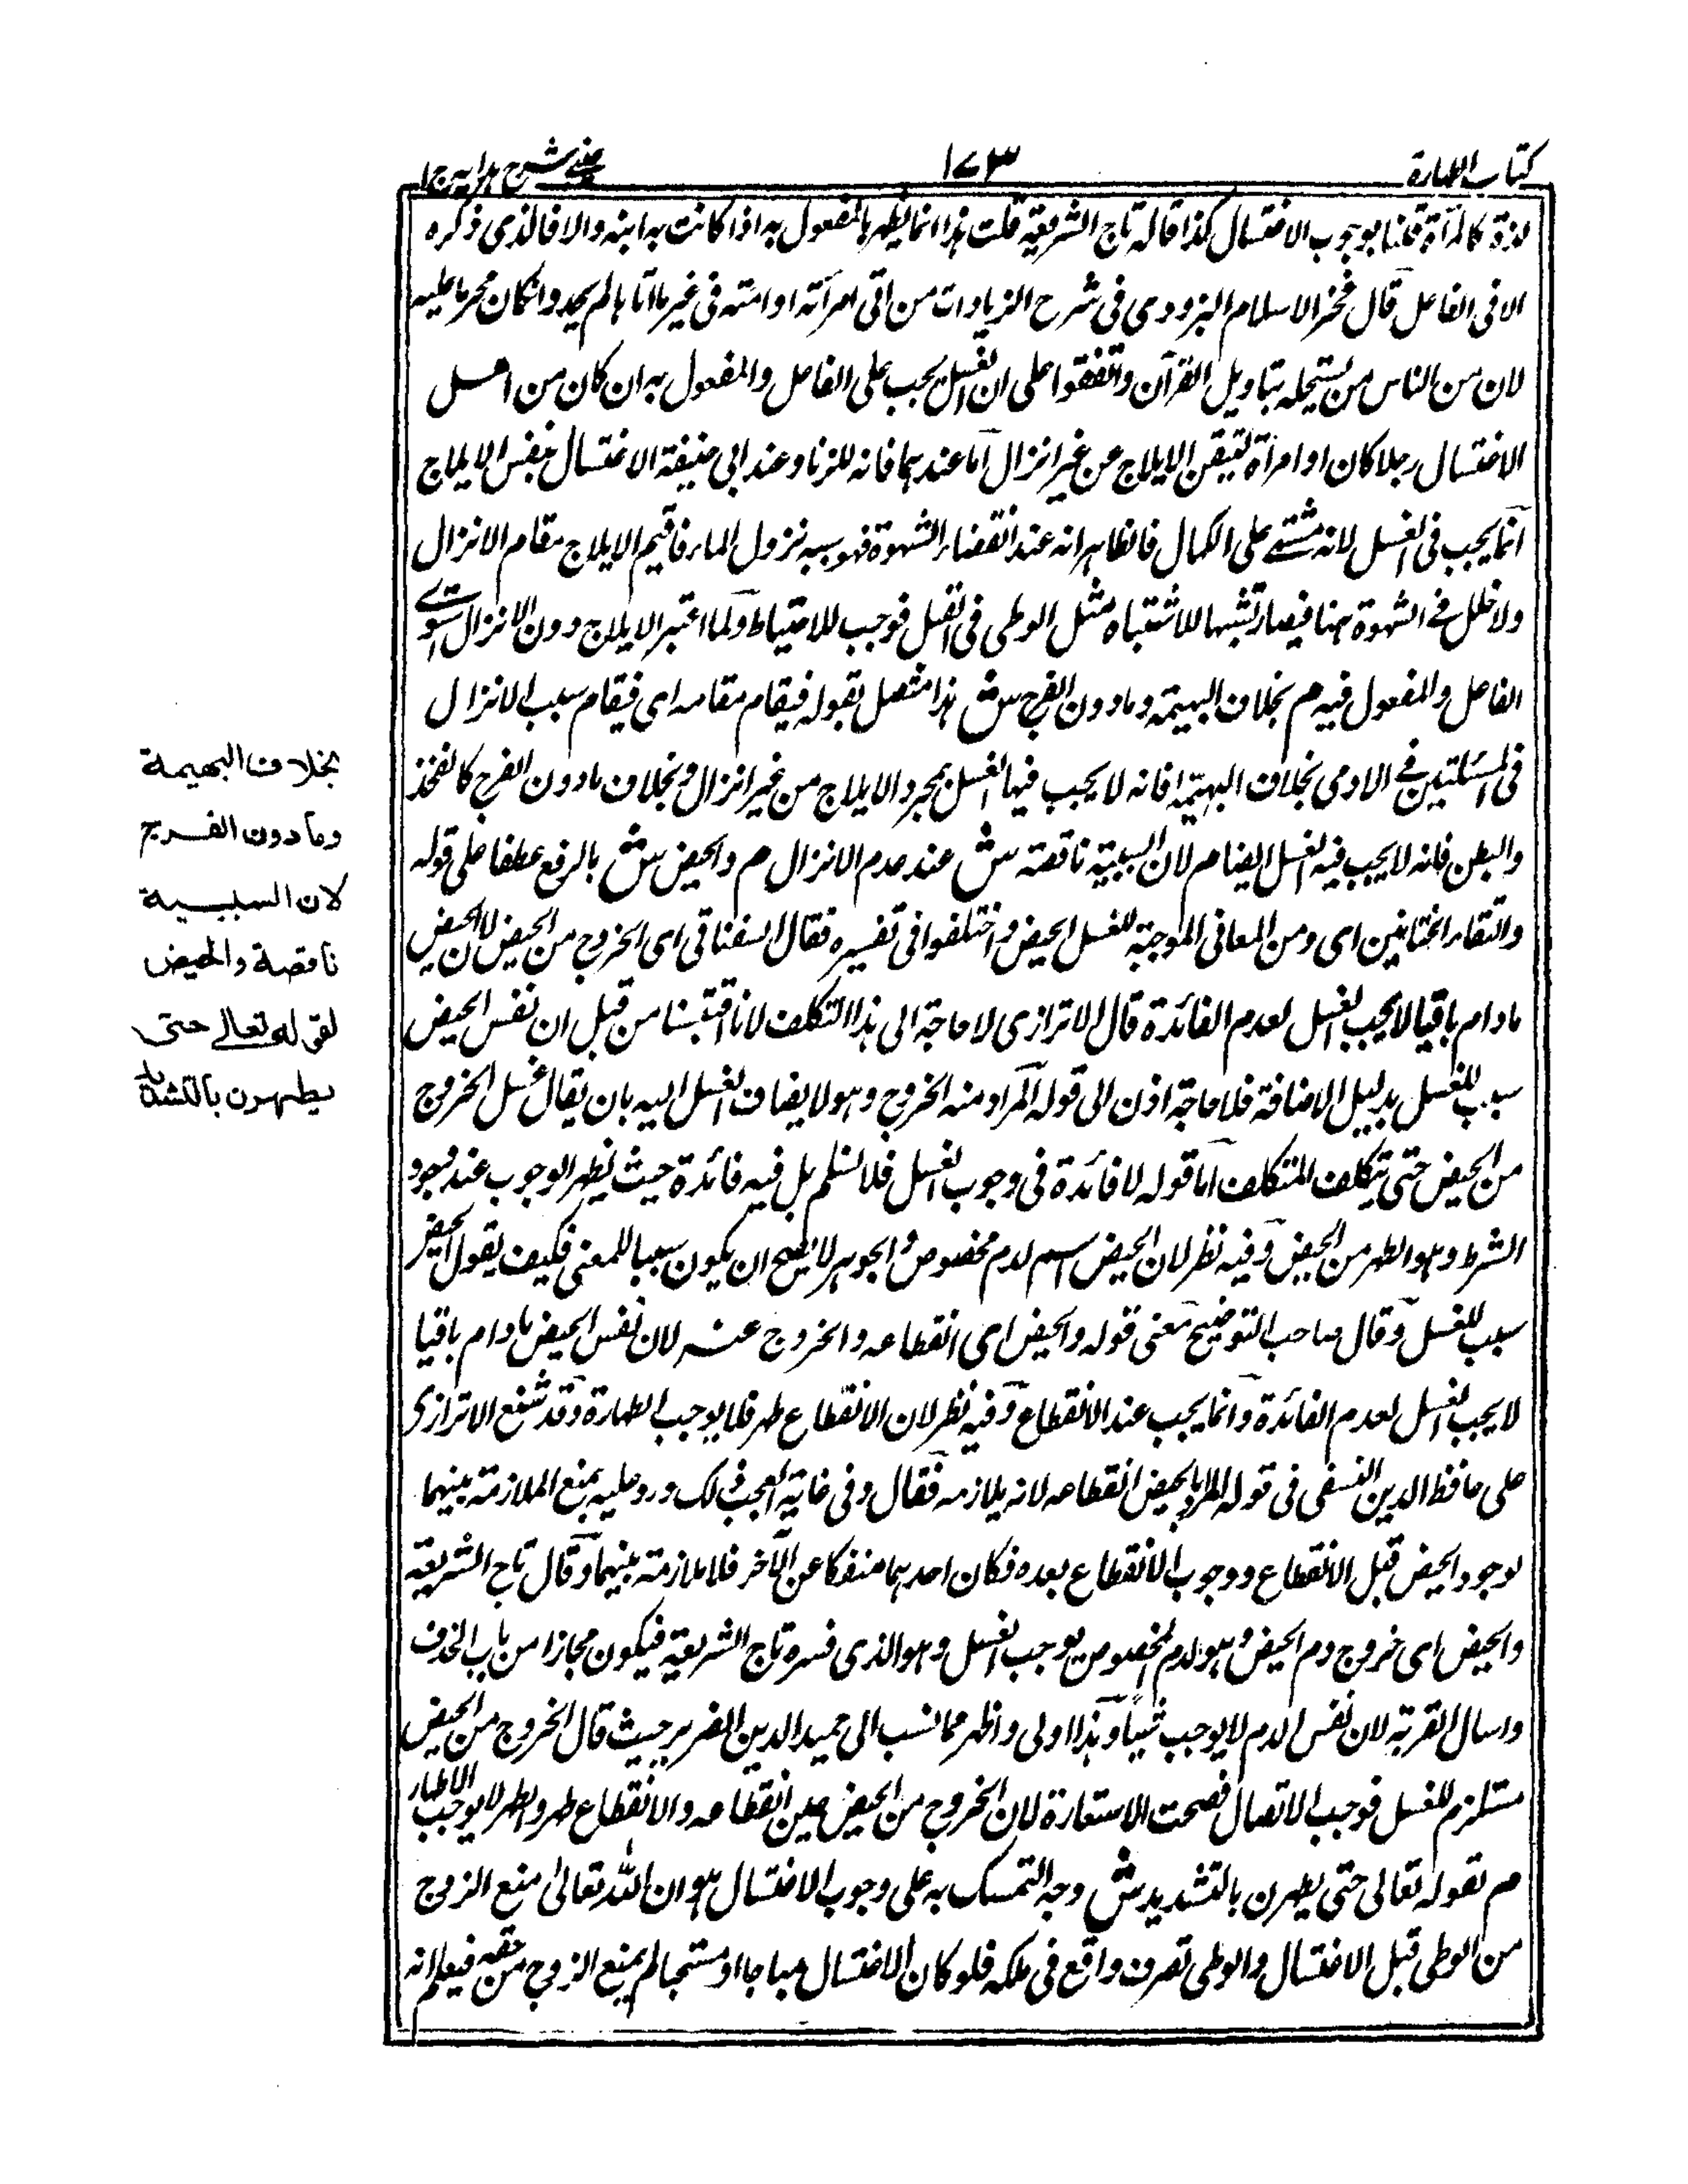 كتاب الطهارة
١٧٣
عینی شرح هدایه ج ١
لذة كالمرأة قلنا بوجوب الاغتسال كذا قاله تاج الشريعة قلت هذا انما يظهر بالمفعول به اذا كانت به ابنة والا فالذى ذكره
الا فى الفاعل قال فخر الاسلام البزدوى فى شرح الزيادات من اتى امرأته او امته فى غير مأتاها لم يحد وان كان محرما عليه
لان من الناس من يستحله بتاويل القرآن واتفقوا على ان الغسل يجب على الفاعل والمفعول به ان كان من اهل
الاغتسال رجلا كان او امرأة لتيقن الايلاج عن غير انزال اما عندهما فانه للزنا وعند ابى حنيفة الاغتسال بنفس الايلاج
انما يجب فى الغسل لانه مشتهى على الكمال فالظاهر انه عند انقضاء الشهوة فهو سبب نزول الماء فاقيم الايلاج مقام الانزال
ولا خلل فى الشهوة هنا فيصار تشبها للاشتباه مثل الوطى فى القبل فوجب للاحتياط ولما اعتبر الايلاج دون الانزال استوى
الفاعل والمفعول فيه م بخلاف البهيمة وما دون الفرج ش هذا متصل بقوله فيقام مقامه اى فيقام سبب الانزال
فى المسئلتين فى الادمى بخلاف البهيمة فانه لا يجب فيها الغسل بمجرد الايلاج من غير انزال وبخلاف ما دون الفرج كالفخذ
والبطن فانه لا يجب فيه الغسل ايضا م لان السببية ناقصة ش عند عدم الانزال م والحيض ش بالرفع عطفا على قوله
والتقاء الختانين اى ومن المعانى الموجبة للغسل الحيض واختلفوا فى تفسيره فقال السغناقى اى الخروج من الحيض لان الحيض
ما دام باقيا لا يجب الغسل لعدم الفائدة قال الاترازى لا حاجة الى هذا التكلف لانا اقتبسنا من قبل ان نفس الحيض
سبب للغسل بدليل الاضافة فلا حاجة اذن الى قوله المراد منه الخروج وهو لا يضاف الغسل اليه بان يقال غسل الخروج
من الحيض حتى يتكلف المتكلف اما قوله لا فائدة فى وجوب الغسل فلا نسلم بل فيه فائدة حيث يظهر الوجوب عند وجود
الشرط وهو الطهر من الحيض وفيه نظر لان الحيض اسم لدم مخصوص والجوهر لا يصح ان يكون سببا للمعنى فكيف يقول الحيض
سبب للغسل وقال صاحب التوضيح معنى قوله والحيض اى انقطاعه والخروج عنه لان نفس الحيض ما دام باقيا
لا يجب الغسل لعدم الفائدة وانما يجب عند الانقطاع وفيه نظر لان الانقطاع طهر فلا يوجب الطهارة وقد شنع الاترازى
على حافظ الدين النسفى فى قوله المراد بالحيض انقطاعه لانه يلازمه فقال وفى غاية العجب ذلك ورد عليه بمنع الملازمة بينهما
لوجود الحيض قبل الانقطاع ووجوب الانقطاع بعده فكان احدهما منفكا عن الآخر فلا ملازمة بينهما وقال تاج الشريعة
والحيض اى خروج دم الحيض وهو لدم المخصوص يوجب الغسل وهو الذى فسره تاج الشريعة فيكون مجازا من باب الحذف
واسال القرية لان نفس الدم لا يوجب شيئا وهذا اولى واظهر مما نسب الى حميد الدين الضرير حيث قال الخروج من الحيض
مستلزم للغسل فوجب الاتصال فصحت الاستعارة لان الخروج من الحيض عين انقطاعه والانقطاع طهر والطهر لا يوجب الاطهار
م لقوله تعالى حتى يطهرن بالتشديد ش وجه التمسك به على وجوب الاغتسال هو ان الله تعالى منع الزوج
من الوطى قبل الاغتسال والوطى تصرف واقع فى ملكه فلو كان الاغتسال مباحا او مستحبا لم يمنع الزوج من حقه فيعلم انه
بخلاف البهيمة
وما دون الفرج
لان السببية
ناقصة والحيض
لقوله تعالے حتى
يطهرن بالتشديد